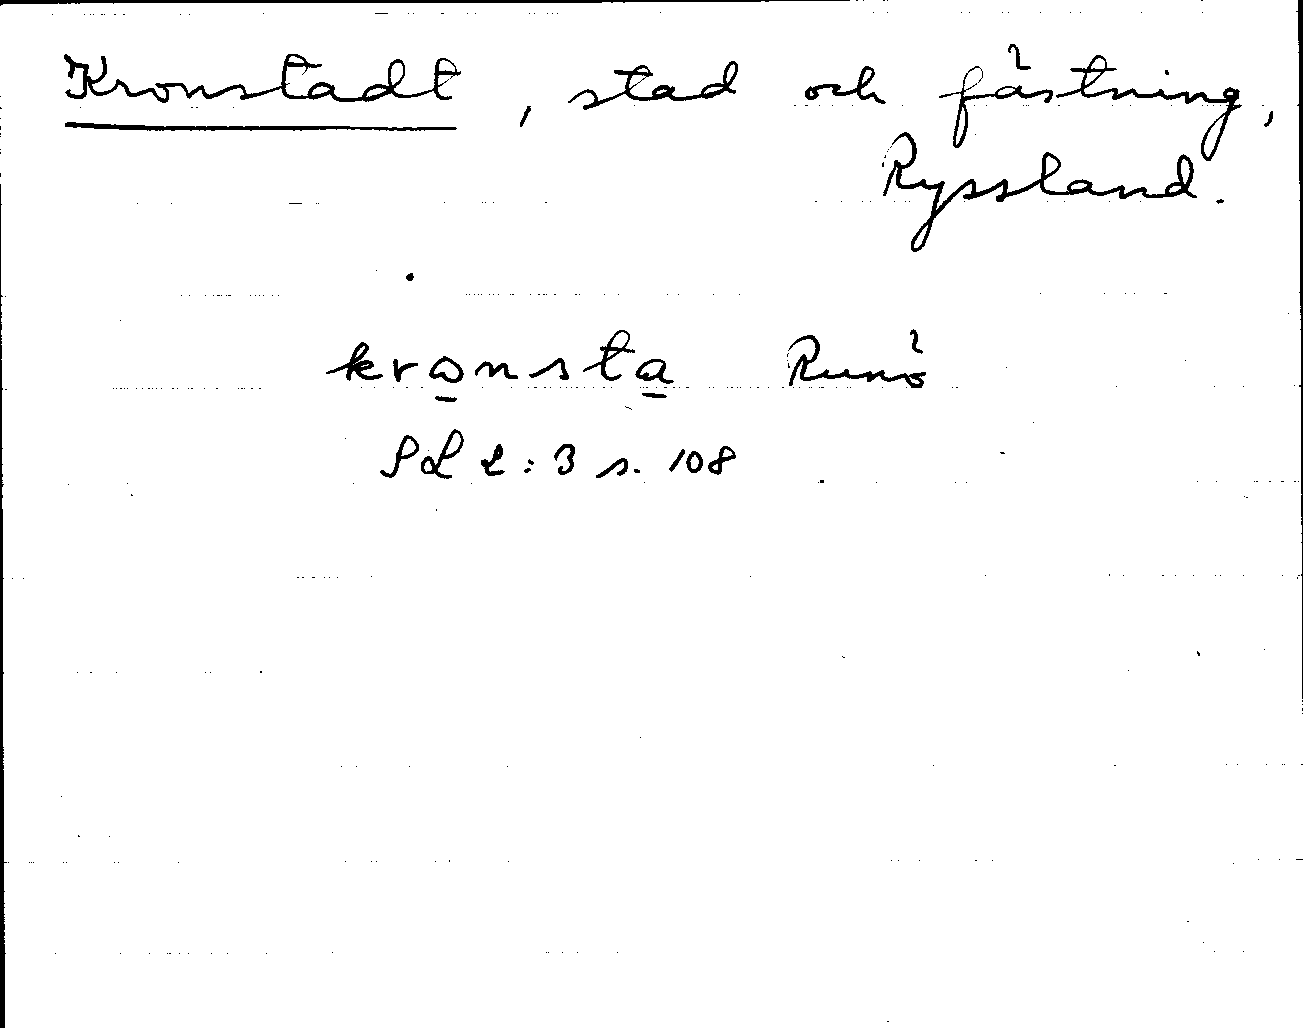 Kronstadt, stad och fästning,
Ryssland.
kronsta Runö
SL 2:3 s. 108